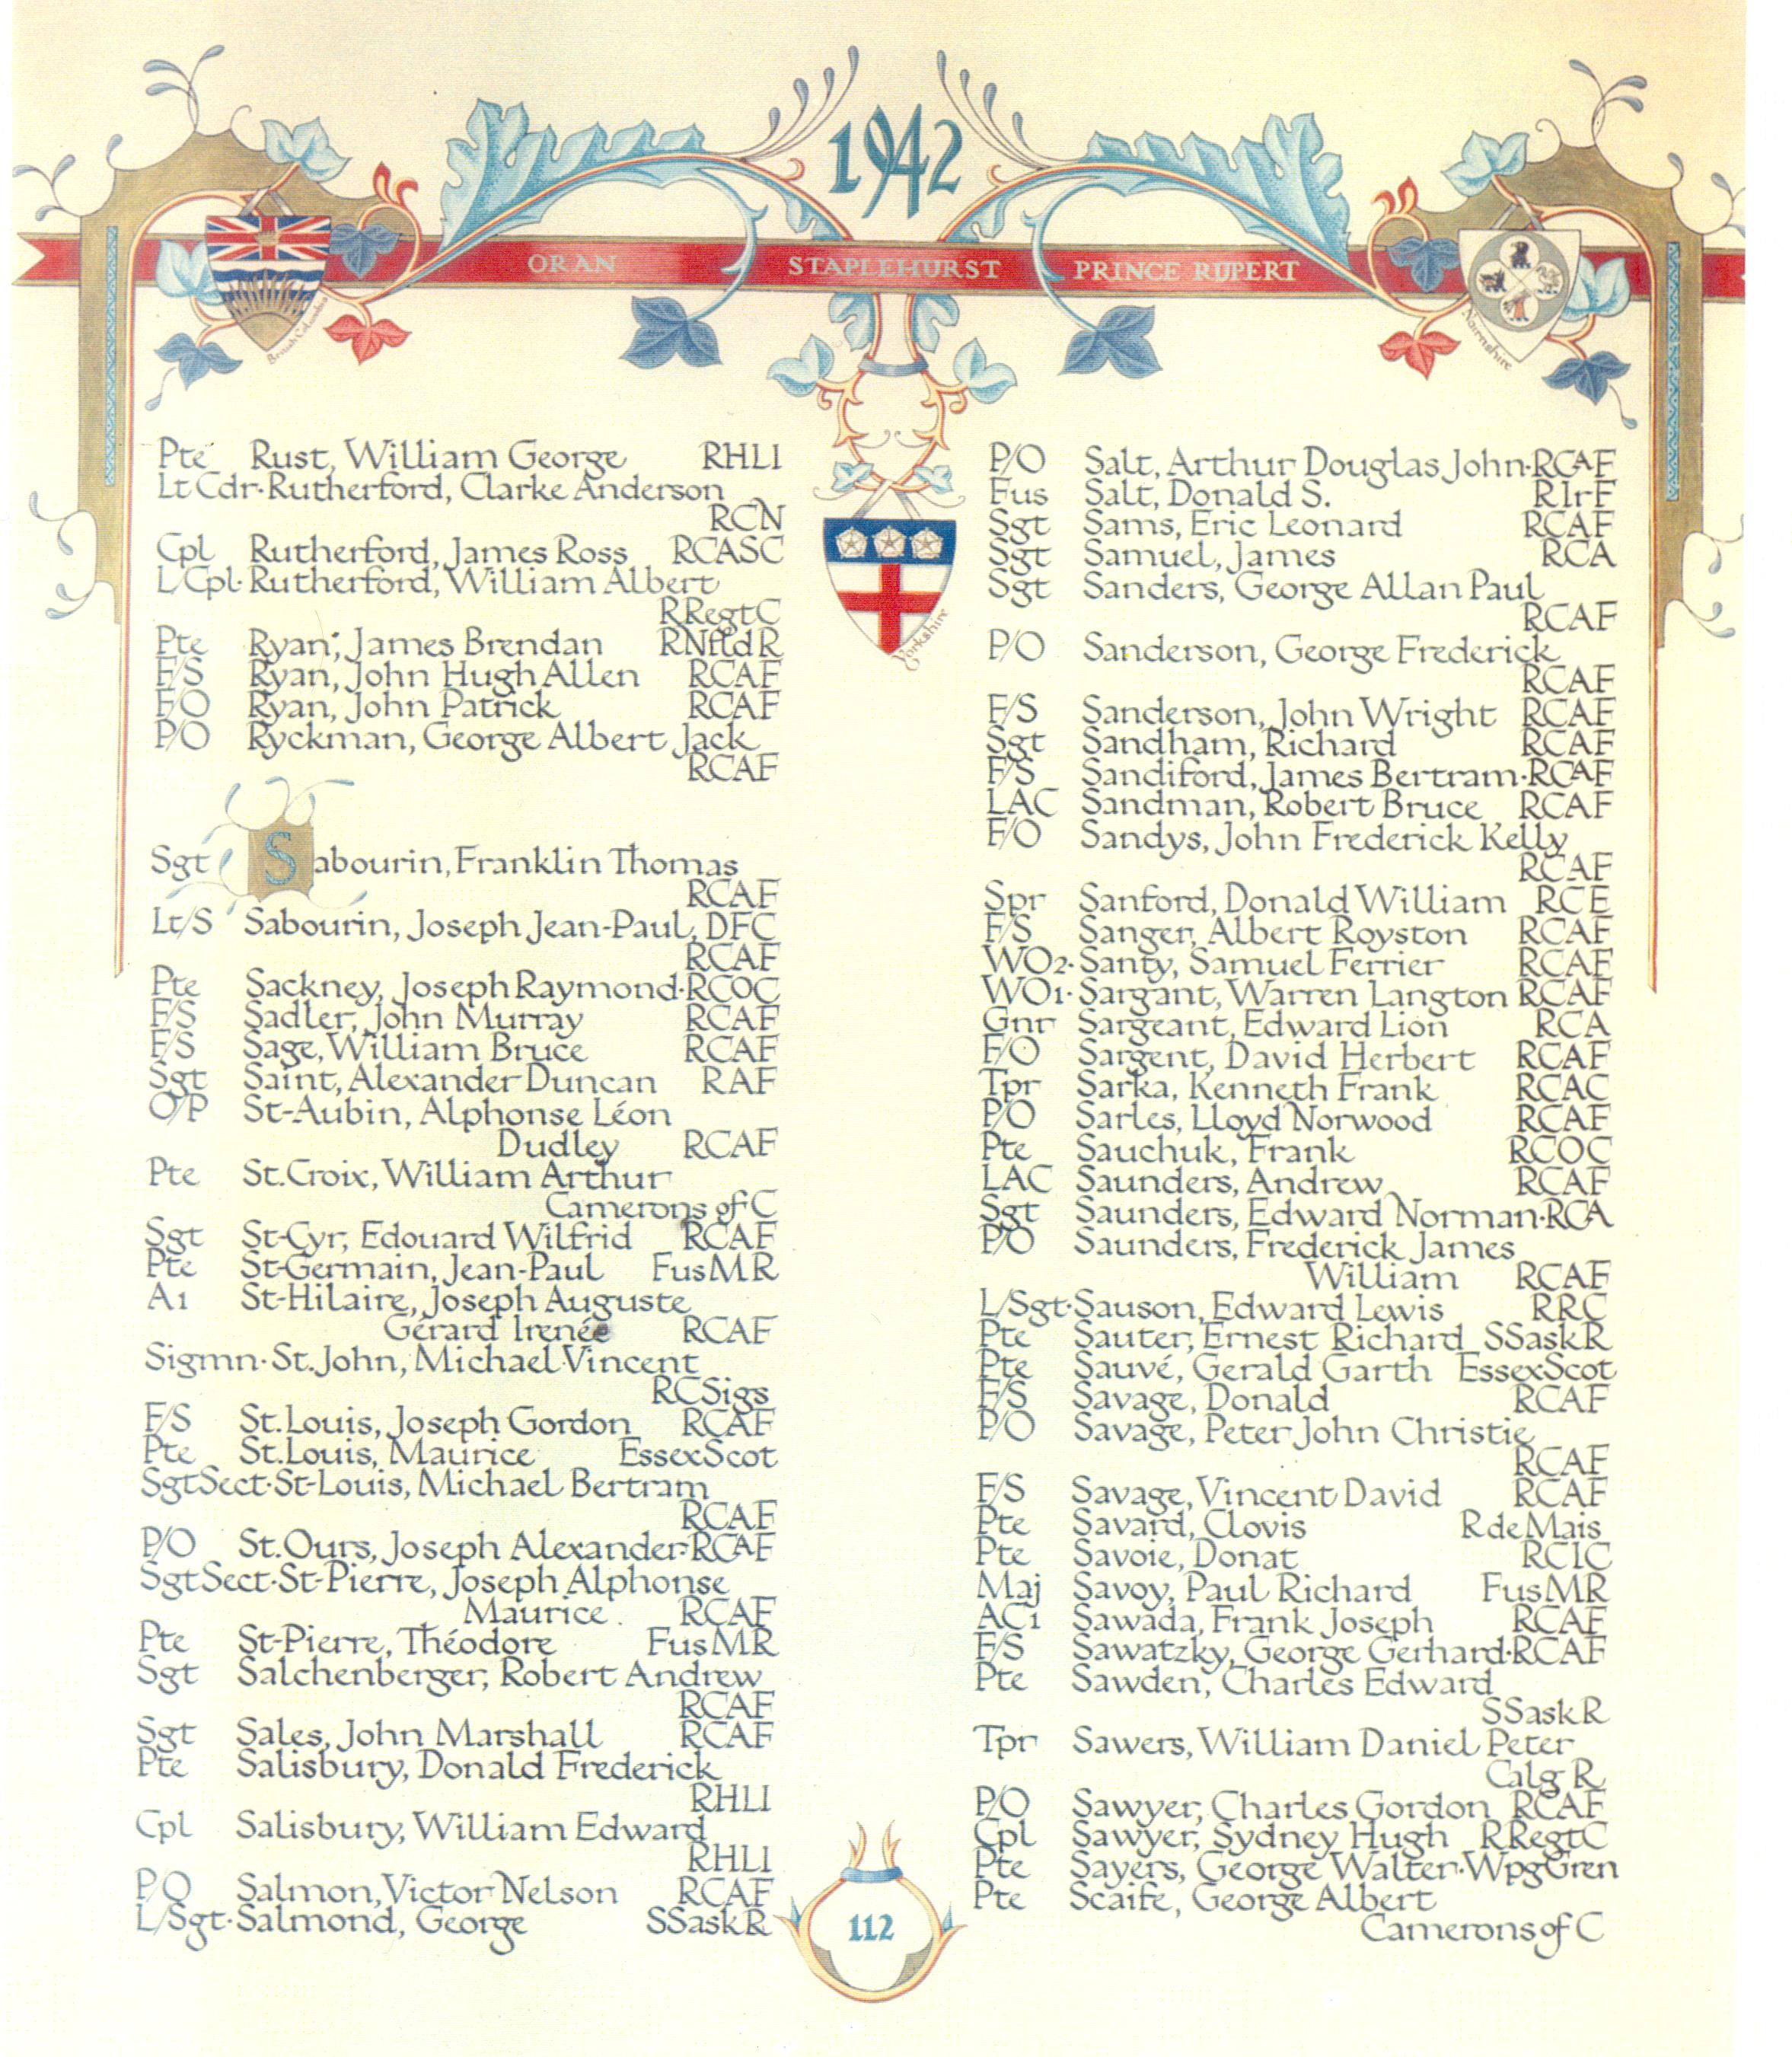 1942
ORAN STAPLEHURST PRINCE RUPERT
British Columbia
Nairnshire
Yorkshire
Pte Rust, William George RHLI
Lt Cdr·Rutherford, Clarke Anderson
RCN
Cpl Rutherford, James Ross RCASC
L/Cpl·Rutherford, William Albert
RRegtC
Pte Ryan, James Brendan RNfldR
F/S Ryan, John Hugh Allen RCAF
F/O Ryan, John Patrick RCAF
P/O Ryckman, George Albert Jack
RCAF
Sgt Sabourin, Franklin Thomas
RCAF
Lt/S Sabourin, Joseph Jean-Paul, DFC
RCAF
Pte Sackney, Joseph Raymond·RCOC
F/S Sadler, John Murray RCAF
F/S Sage, William Bruce RCAF
Sgt Saint, Alexander Duncan RAF
O/P St-Aubin, Alphonse Léon
Dudley RCAF
Pte St.Croix, William Arthur
Camerons of C
Sgt St-Cyr, Edouard Wilfrid RCAF
Pte St-Germain, Jean-Paul FusMR
A1 St-Hilaire, Joseph Auguste
Gérard Irenée RCAF
Sigmn·St.John, Michael Vincent
RCSigs
F/S St.Louis, Joseph Gordon RCAF
Pte St.Louis, Maurice EssexScot
SgtSect·St-Louis, Michael Bertram
RCAF
P/O St.Ours, Joseph Alexander·RCAF
SgtSect·St-Pierre, Joseph Alphonse
Maurice RCAF
Pte St-Pierre, Théodore FusMR
Sgt Salchenberger, Robert Andrew
RCAF
Sgt Sales, John Marshall RCAF
Pte Salisbury, Donald Frederick
RHLI
Cpl Salisbury, William Edward
RHLI
P/O Salmon, Victor Nelson RCAF
L/Sgt·Salmond, George SSaskR
P/O Salt, Arthur Douglas John·RCAF
Fus Salt, Donald S. RIrF
Sgt Sams, Eric Leonard RCAF
Sgt Samuel, James RCA
Sgt Sanders, George Allan Paul
RCAF
P/O Sanderson, George Frederick
RCAF
F/S Sanderson, John Wright RCAF
Sgt Sandham, Richard RCAF
F/S Sandiford, James Bertram·RCAF
LAC Sandman, Robert Bruce RCAF
F/O Sandys, John Frederick Kelly
RCAF
Spr Sanford, Donald William RCE
F/S Sanger, Albert Royston RCAF
WO2·Santy, Samuel Ferrier RCAF
WO1·Sargant, Warren Langton RCAF
Gnr Sargeant, Edward Lion RCA
F/O Sargent, David Herbert RCAF
Tpr Sarka, Kenneth Frank RCAC
P/O Sarles, Lloyd Norwood RCAF
Pte Sauchuk, Frank RCOC
LAC Saunders, Andrew RCAF
Sgt Saunders, Edward Norman·RCA
P/O Saunders, Frederick James
William RCAF
L/Sgt·Sauson, Edward Lewis RRC
Pte Sauter, Ernest Richard SSaskR
Pte Sauvé, Gerald Garth EssexScot
F/S Savage, Donald RCAF
P/O Savage, Peter John Christie
RCAF
F/S Savage, Vincent David RCAF
Pte Savard, Clovis R de Mais
Pte Savoie, Donat RCIC
Maj Savoy, Paul Richard FusMR
AC1 Sawada, Frank Joseph RCAF
F/S Sawatzky, George Gerhard·RCAF
Pte Sawden, Charles Edward
SSaskR
Tpr Sawers, William Daniel Peter
Calg R
P/O Sawyer, Charles Gordon RCAF
Cpl Sawyer, Sydney Hugh RRegtC
Pte Sayers, George Walter·WpgGren
Pte Scaife, George Albert
Camerons of C
112